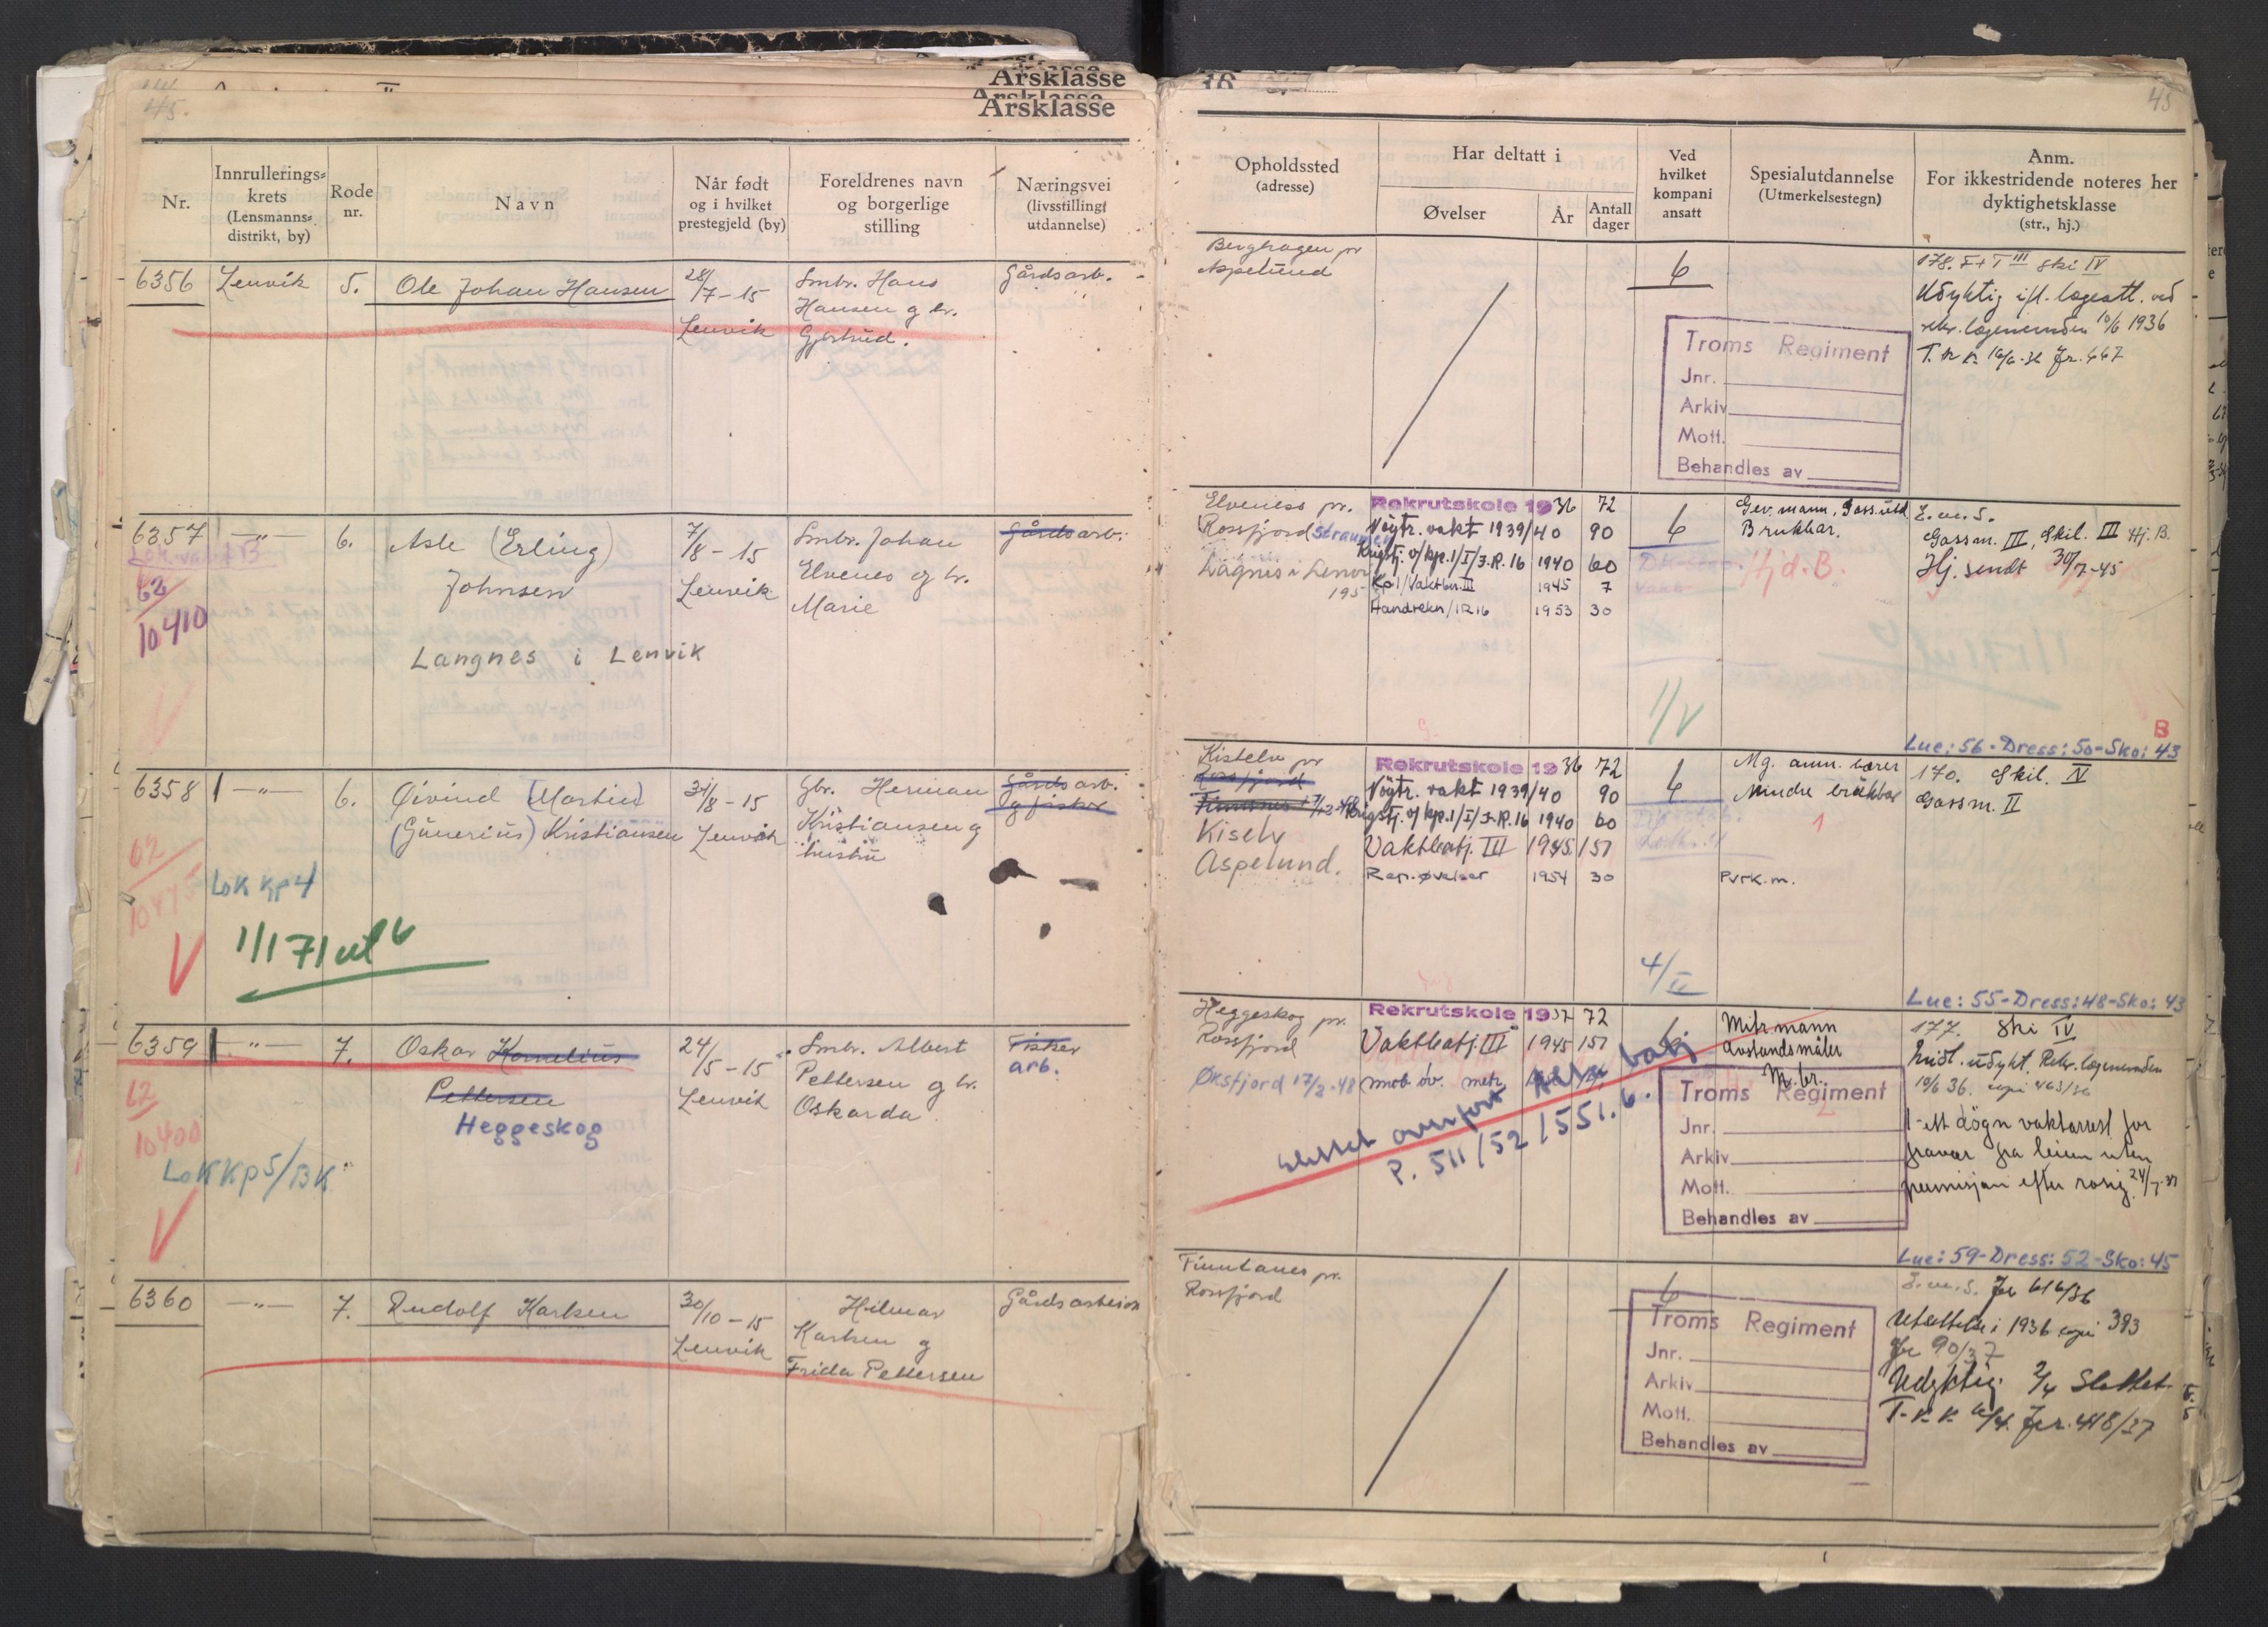 Årsklasse
Årsklasse
45.
Nr.
Innrullerings-
krets
(Lensmanns-
distrikt, by)
Rode
nr.
Navn
Når født
og i hvilket
prestegjeld (by)
Foreldrenes navn
og borgerlige
stilling
Næringsvei
(livsstilling,
utdannelse)
6356 Lenvik 5. Ole Johan Hansen
28/7-15
Lenvik
Smbr. Hans
Hansen g hr.
Gjertrud.
Gårdsarb.
6357 -"- 6. Asle (Erling)
Johnsen
Langnes i Lenvik
62
10410
7/8-15
Lenvik
Smbr. Johan
Elvenes og hr.
Marie
Gårdsarb.
6358 -"- 6. Øivind (Martin)
(Gunerius) Kristiansen
62
LoK Kp 4
1/171
31/8-15
Lenvik
Gbr. Herman
Kristiansen g
hustru
Gårdsarb.
og fisker
6359 -"- 7. Oskar Kornelius
Pettersen
Heggeskog
62
10400
LoK Kp 5/BK
24/5-15
Lenvik
Smbr. Albert
Pettersen og hr.
Oskarda
Fisker
arb.
6360 -"- 7. Rudolf Karlsen
30/10-15
Lenvik
Hilmar
Karlsen og
Frida Pettersen
Gårdsarbeider
45
Opholdssted
(adresse)
Har deltatt i
Øvelser
År
Antall
dager
Ved
hvilket
kompani
ansatt
Spesialutdannelse
(Utmerkelsestegn)
Anm.
For ikkestridende noteres her
dyktighetsklasse
(str., hj.)
Berghagen pr
Aspelund
6
178. Ski IV
Udyktig ifl. lægeatt. ved
rekr. lægenemden 10/6 1936
T.R.K. 16/6-36 Jr. 447
Troms Regiment
Jnr.
Arkiv
Mott.
Behandles av
Elvenes pr.
Rossfjord Straumen
Lagnes i Lenvik
195
Rekrutskole 1936 72
Nøytr. vakt 1939/40 90
Krigstj. v/kp.1/I/J.R.16 1940 60
Kp 1/Vaktbn. III 1945 7
Handrekn/IR16 1953 30
6
1/V
Gev.mann, Gassutd.
Brukbar.
Hjd.B.
Gassm. III, Skil. III Hj. B.
Hj. sendt 30/7-45
B
Lue: 56-Dress: 50-Sko: 43
Kistelv pr
Rossfjord
Finnsnes
Kiselv
Aspelund.
Rekrutskole 1936 72
Nøytr. vakt 1939/40 90
Krigstj. v/kp.1/I/J.R.16 1940 60
Vaktbatj. III 1945 151
Rep.øvelser 1954 30
6
4/II
Mg. amm. bærer
Mindre brukbar
1
Pvrk.m.
170. Skil. IV
Gassm. II
Lue: 55-Dress: 48-Sko: 43
Heggeskog pr.
Rossfjord
Øksfjord 17/2-48
Rekrutskole 1937 72
Vaktbatj III 1945 151
mob øv. metr.
6
slettet overført
P. 511/52/551.6.
Mitr mann
Avstandsmåler
M.br.
177. Ski IV
Midl. udykt. Rekr. lægenemnden
10/6 36. kopi 463/36
1-ett døgn vaktarrest for
fravær fra leiren uten
permisjon efter rosig. 24/7-37
Troms Regiment
Jnr.
Arkiv
Mott.
Behandles av
Lue: 59-Dress: 52-Sko: 45
pr.
Rossfjord
6
Jr 616/36
Utsettelse i 1936 kopi 393
Jr 90/37
Udyktig 2/4 Slettet
T.R.K. Jr. 418/37
Troms Regiment
Jnr.
Arkiv
Mott.
Behandles av